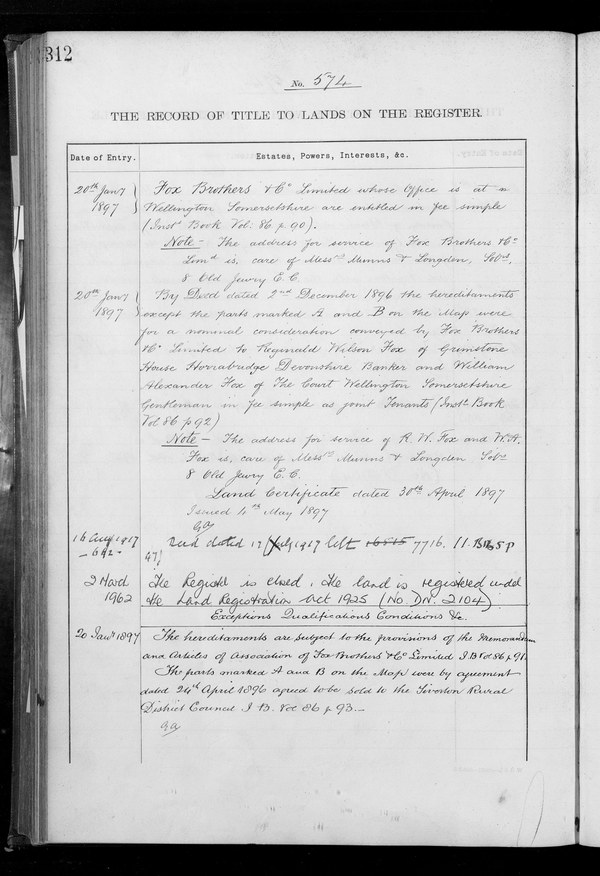 312
No. 574
THE RECORD OF TITLE TO LANDS ON THE REGISTER
Date of Entry. Estates, Powers, Interests, &c.
20th Jany 1897
Fox Brothers & Co Limited whose Office is at
Wellington Somersetshire are entitled in fee simple
(Inst. Book Vol. 86 p 90).
Note - The address for service of Fox Brothers & Co
Limd is, care of Messrs Munns & Longden, Solrs,
8 Old Jewry E.C.
20th Jany 1897
By Deed dated 2nd December 1896 the hereditaments
except the parts marked A and B on the Map were
for a nominal consideration conveyed by Fox Brothers
& Co Limited to Reginald Wilson Fox of Grimstone
House Horrabridge Devonshire Banker and William
Alexander Fox of The Court Wellington Somersetshire
Gentleman in fee simple as joint Tenants (Inst. Book
Vol 86 p 92)
Note - The address for service of R. W. Fox and W. A.
Fox is, care of Messrs Munns & Longden Solrs
8 Old Jewry E.C.
Land Certificate dated 30th April 1897
Issued 4th May 1897
16 Aug 1917
Deed dated 12 July 1917 left 16515 7716.
2 March 1962
The Register is closed. The land is registered under
the Land Registration Act 1925 (No. DN. 2104)
Exceptions Qualifications Conditions &c.
20 Jany 1897
The hereditaments are subject to the provisions of the Memorandum
and Articles of Association of Fox Brothers & Co Limited I.B Vol 86 p 91.
The parts marked A and B on the Map were by agreement
dated 24th April 1896 agreed to be sold to the Tiverton Rural
District Council I. B. Vol 86 p 93.-